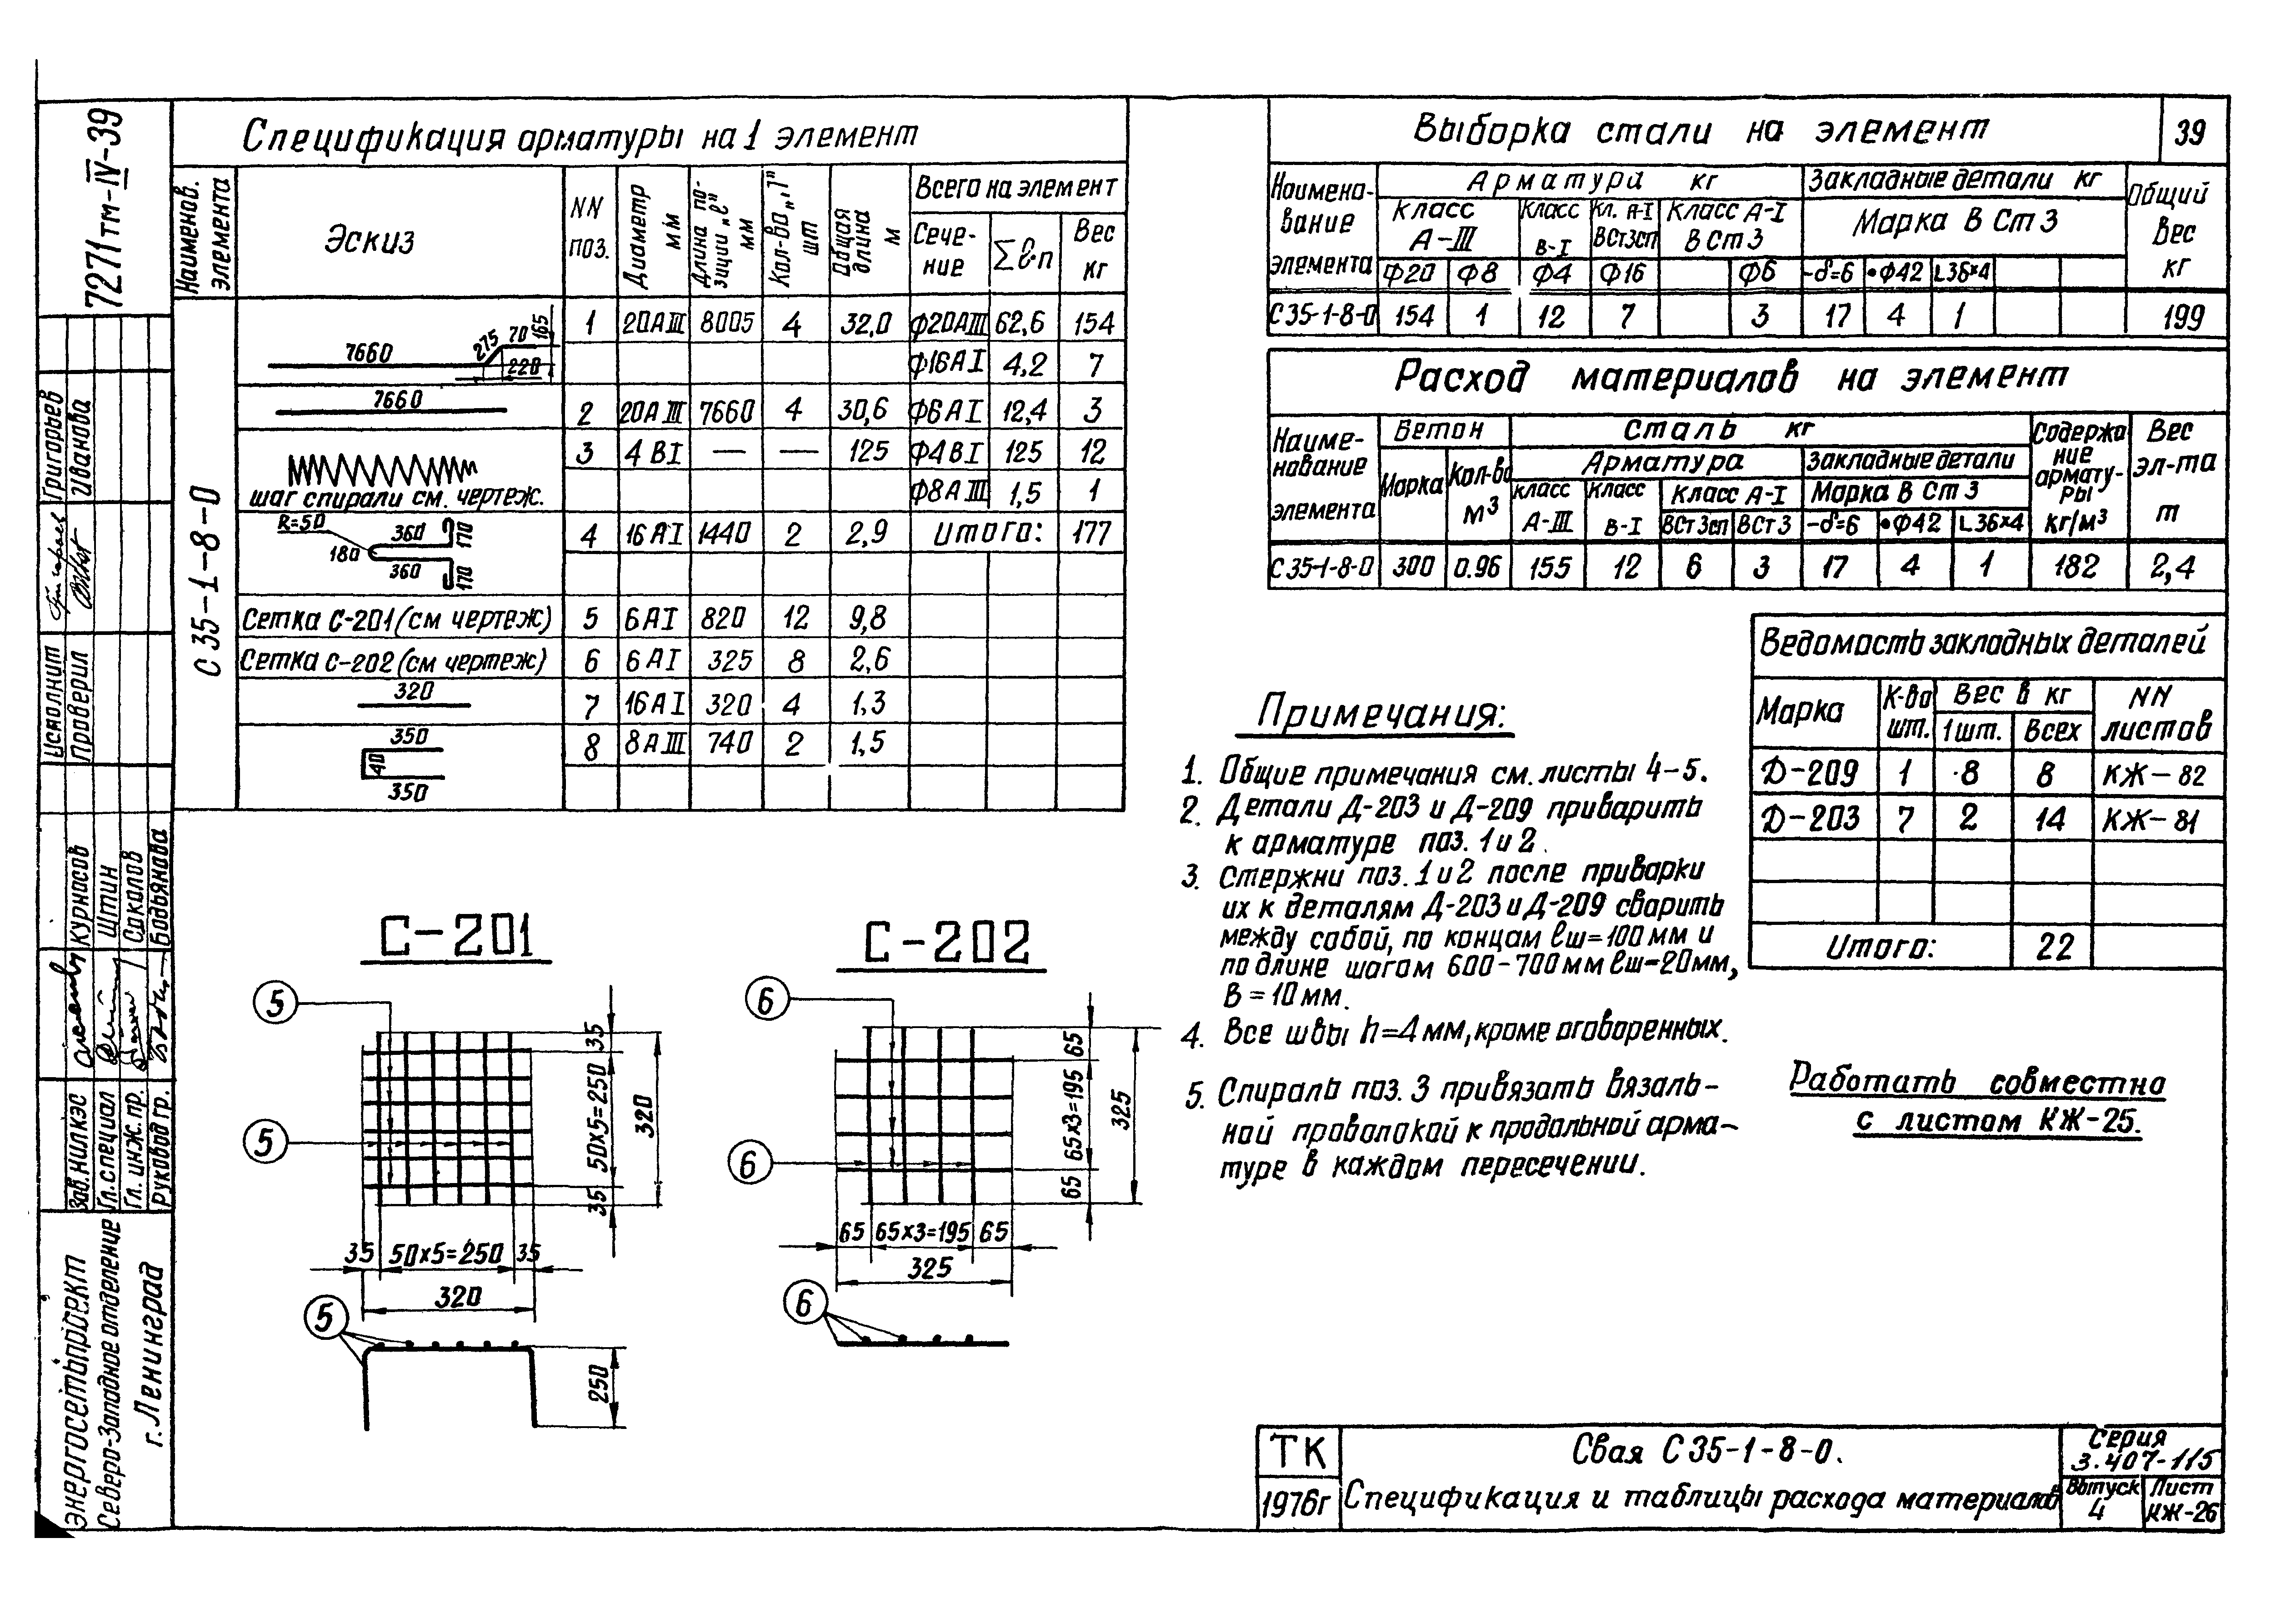 7271тм-IV-39
Спецификация арматуры на 1 элемент
Наименов. элемента
Эскиз
NN поз.
Диаметр мм
Длина позиции „ℓ" мм
Кол-во „п" шт
Общая длина м
Всего на элемент
Сечение
Σℓ·п
Вес кг
С 35-1-8-0
7660 275 70 165 220
1 20АIII 8005 4 32,0 Ф20АIII 62,6 154
Ф16АI 4,2 7
7660
2 20АIII 7660 4 30,6 Ф6АI 12,4 3
3 4ВI — — 125 Ф4ВI 125 12
шаг спирали см. чертеж.
Ф8АIII 1,5 1
R=50 360 170 180 360 170
4 16АI 1440 2 2,9 Итого: 177
Сетка С-201 (см чертеж) 5 6АI 820 12 9,8
Сетка С-202 (см чертеж) 6 6АI 325 8 2,6
320
7 16АI 320 4 1,3
350 40 350
8 8АIII 740 2 1,5
Выборка стали на элемент
39
Наименование элемента
Арматура кг
Закладные детали кг
Общий вес кг
Класс А-III
Класс В-I
Кл. А-I ВСт3сп
Класс А-I ВСт3
Марка ВСт3
Ф20 Ф8 Ф4 Ф16 Ф6 -δ=6 •Ф42 L36×4
С35-1-8-0 154 1 12 7 3 17 4 1 199
Расход материалов на элемент
Наименование элемента
Бетон
Сталь кг
Содержание арматуры кг/м³
Вес эл-та т
Марка
Кол-во м³
Арматура
Закладные детали
Класс А-III
Класс В-I
Класс А-I
Марка ВСт3
ВСт3сп ВСт3 -δ=6 •Ф42 L36×4
С35-1-8-0 300 0.96 155 12 6 3 17 4 1 182 2,4
Ведомость закладных деталей
Марка
К-во шт.
Вес в кг
NN листов
1 шт. Всех
Д-209 1 8 8 КЖ-82
Д-203 7 2 14 КЖ-81
Итого: 22
Примечания:
1. Общие примечания см. листы 4-5.
2. Детали Д-203 и Д-209 приварить
к арматуре поз. 1 и 2.
3. Стержни поз. 1 и 2 после приварки
их к деталям Д-203 и Д-209 сварить
между собой, по концам ℓш=100 мм и
по длине шагом 600-700 мм ℓш=20 мм,
в=10 мм.
4. Все швы h=4 мм, кроме оговоренных.
5. Спираль поз. 3 привязать вязаль-
ной проволокой к продольной арма-
туре в каждом пересечении.
Работать совместно
с листом КЖ-25.
С-201
5
5
35
50×5=250
35
320
35 50×5=250 35
320
5
250
С-202
6
6
65
65×3=195
65
325
65 65×3=195 65
325
6
Исполнит Григорьев
Проверил Иванова
Зав. НИЛКЭС Курносов
Гл. специал Штин
Гл. инж. пр. Соколов
Руковод гр. Бодьянова
Энергосетьпроект
Северо-Западное отделение
г. Ленинград
ТК
1976г
Свая С35-1-8-0.
Спецификация и таблицы расхода материалов
Серия
3.407-115
Выпуск
4
Лист
КЖ-26